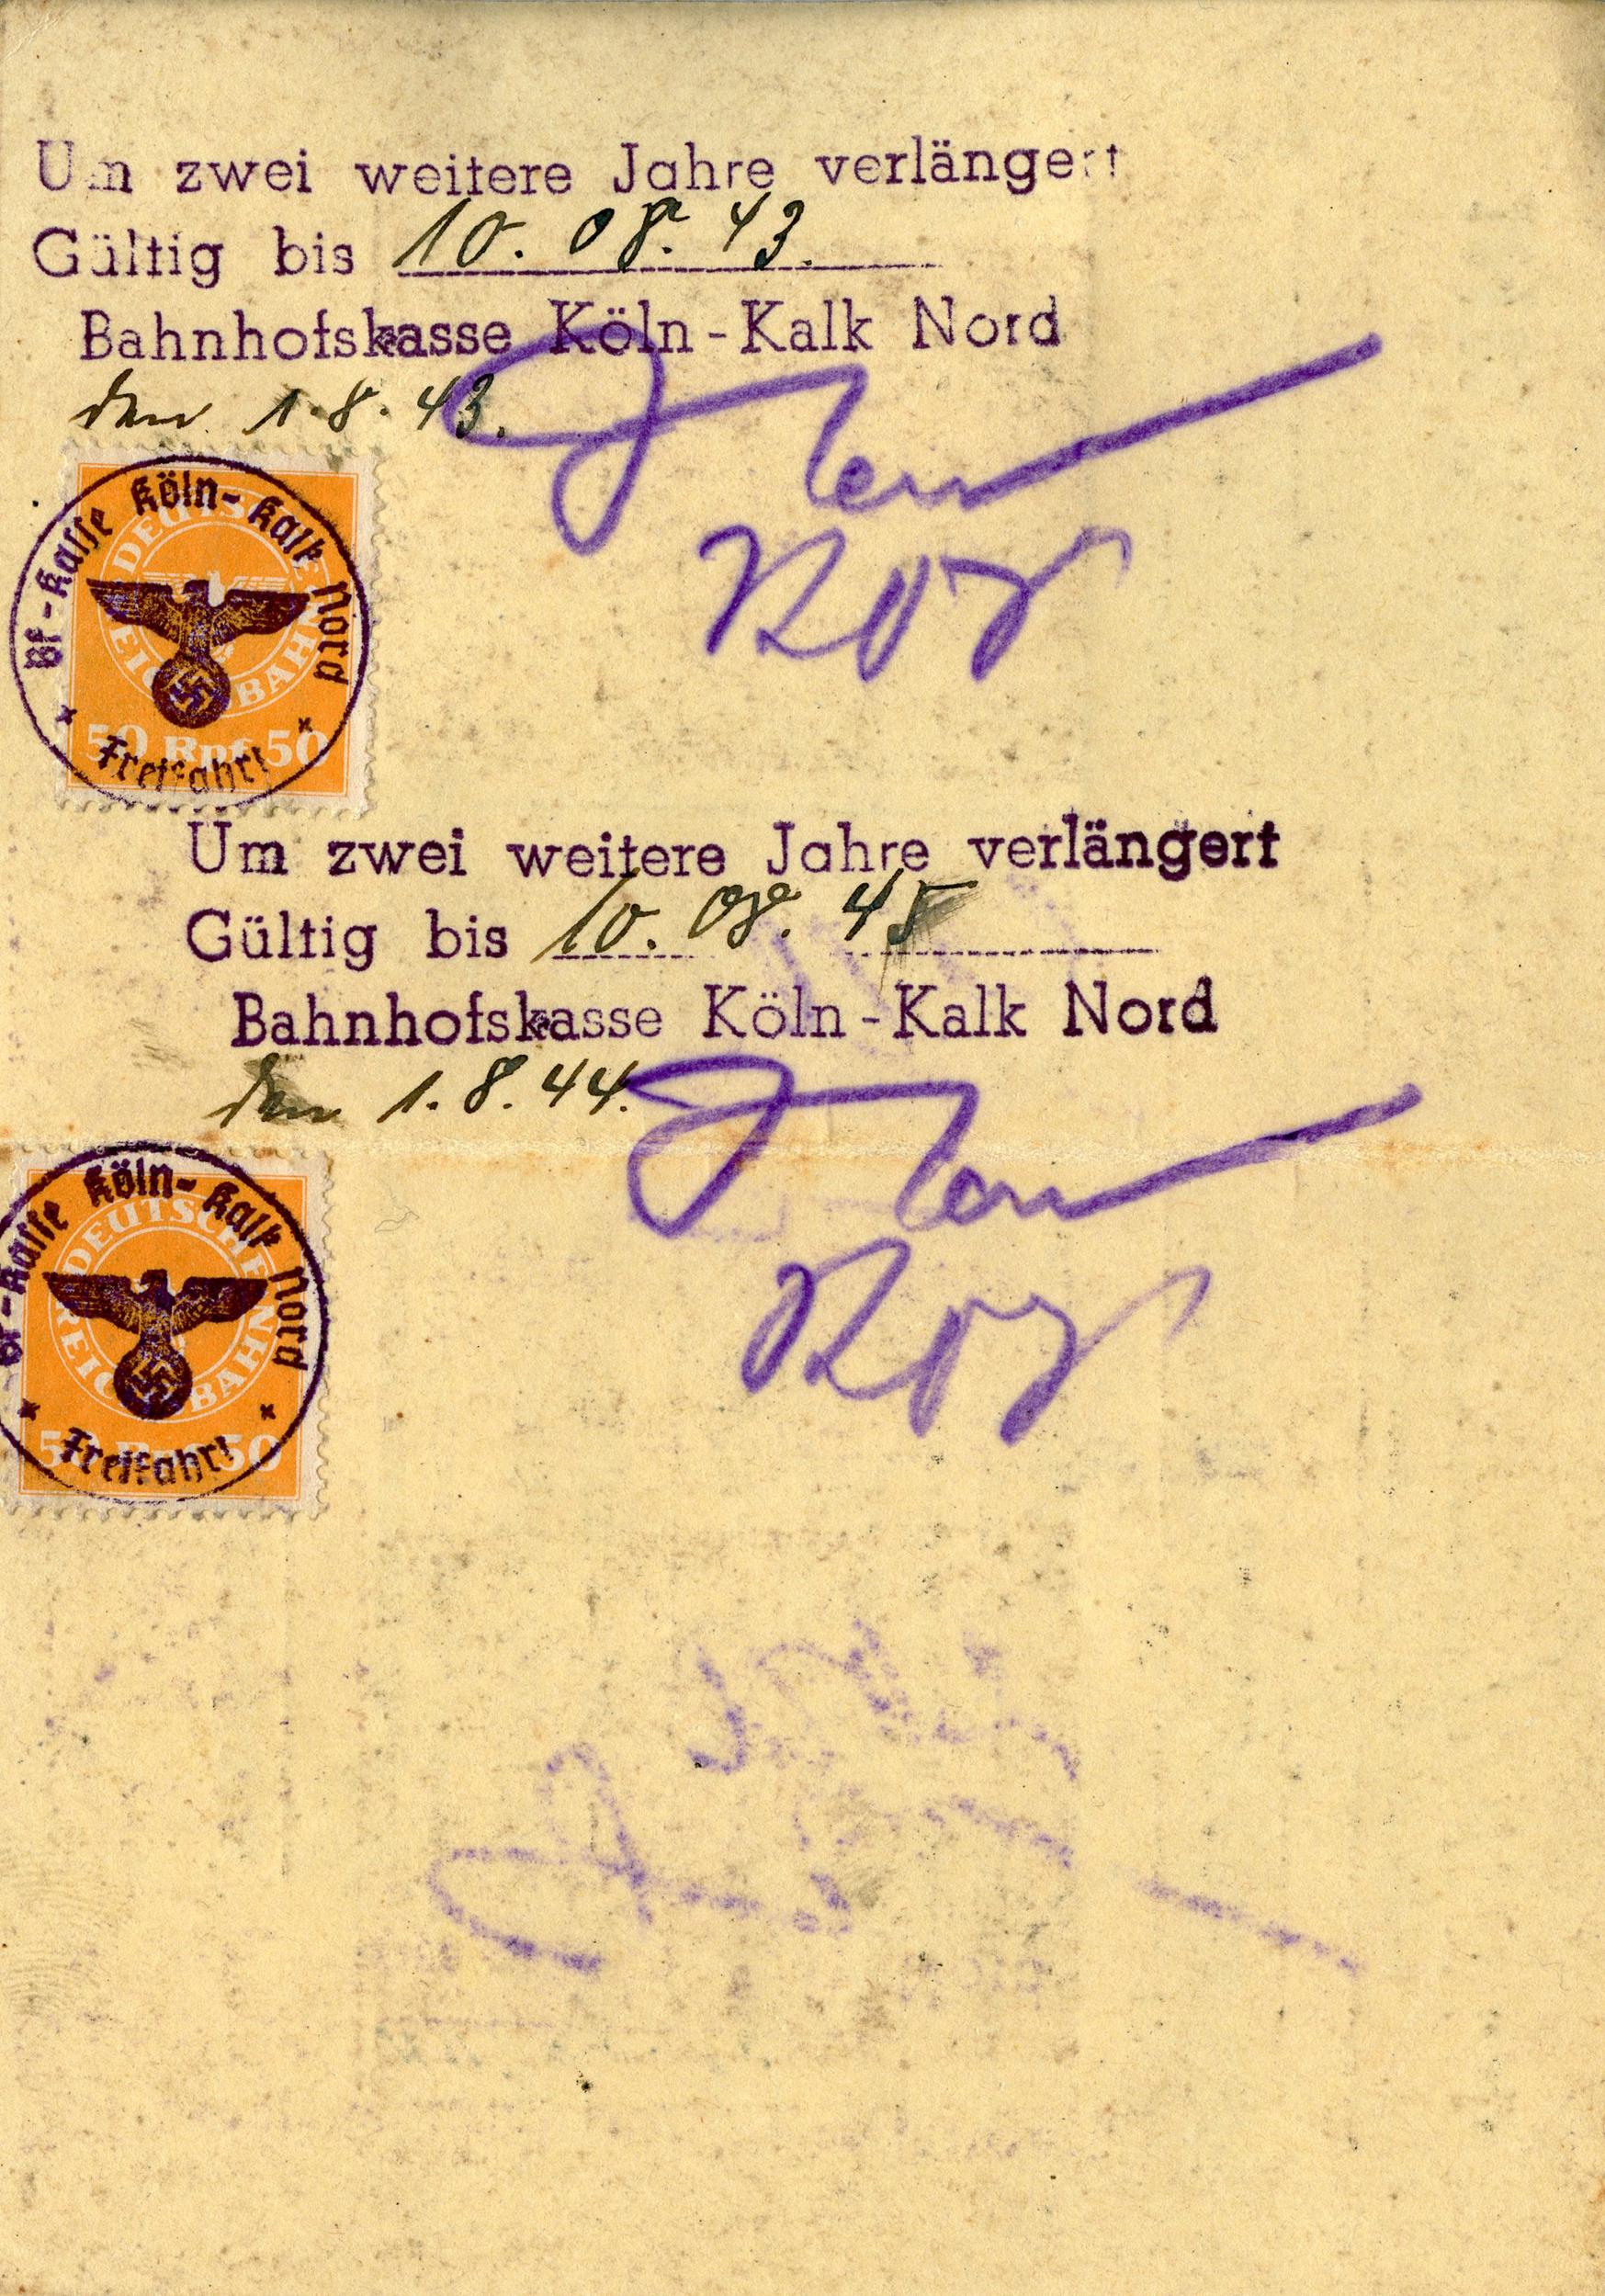 Um zwei weitere Jahre verlängert
Gültig bis 10. 08. 43.
Bahnhofskasse Köln-Kalk Nord
den 1.8.43.
Bf-Kasse Köln-Kalk Nord
DEUTSCHE REICHSBAHN
50 Rpf 50
Freifahrt
Um zwei weitere Jahre verlängert
Gültig bis 10. 08. 45
Bahnhofskasse Köln-Kalk Nord
den 1.8.44.
Bf-Kasse Köln-Kalk Nord
DEUTSCHE REICHSBAHN
50 Rpf 50
Freifahrt